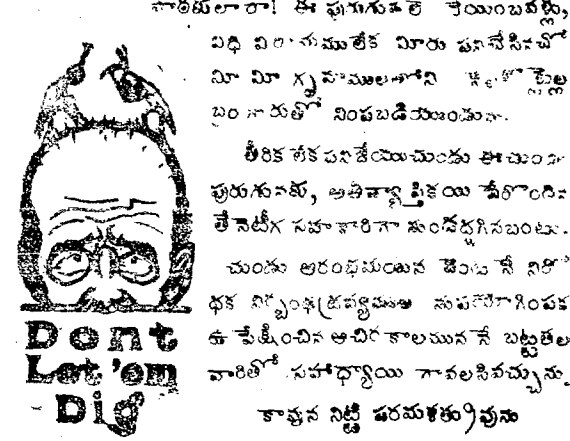 విధి విరామము లేక మీరు పనిచేసినచో
మీ మీ గృహములలోని
బంగారుతో నింపబడియుండును.
తీరిక లేక పనిజేయుచుండు ఈ చుండు
పురుగునకు, అతివ్యాప్తికయి పేరొందిన
తేనెటీగ సహకారిగా నుండదగినబంటు.
చుండు ఆరంభమయిన వెంటనే నిరో
ధక నిర్బంధద్రవ్యముల నుపయోగింపక
ఉపేక్షించిన అచిరకాలముననే బట్టతల
వారితో సహాధ్యాయి గావలసివచ్చును.
కావున నిట్టి పరమశత్రువును
Dont
Let 'em
Dig